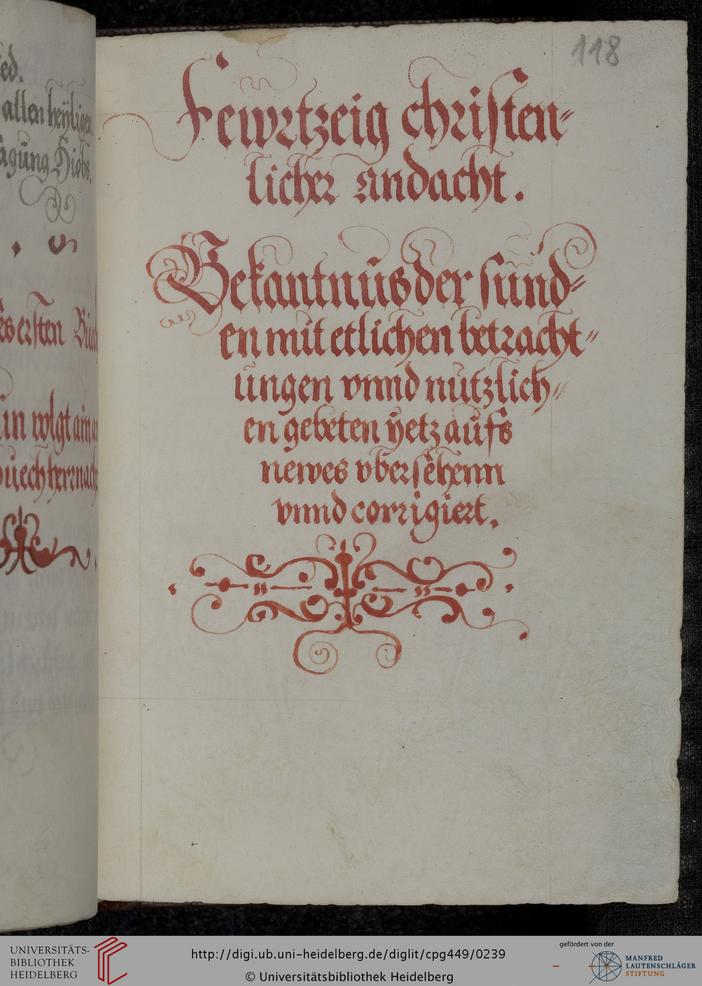 ed.
allen heÿligen
agung Hiobs.
es ersten Buch
118
Fewrtzeig christen=
licher andacht.
Bekantnus der sünd=
en mit etlichen betracht=
ungen vnnd nützlich=
en gebeten ÿetz aufs
newes vbersehenn
vnnd corrigiert.
UNIVERSITÄTS-
BIBLIOTHEK
HEIDELBERG
http://digi.ub.uni-heidelberg.de/diglit/cpg449/0239
© Universitätsbibliothek Heidelberg
gefördert von der
MANFRED
LAUTENSCHLÄGER
STIFTUNG